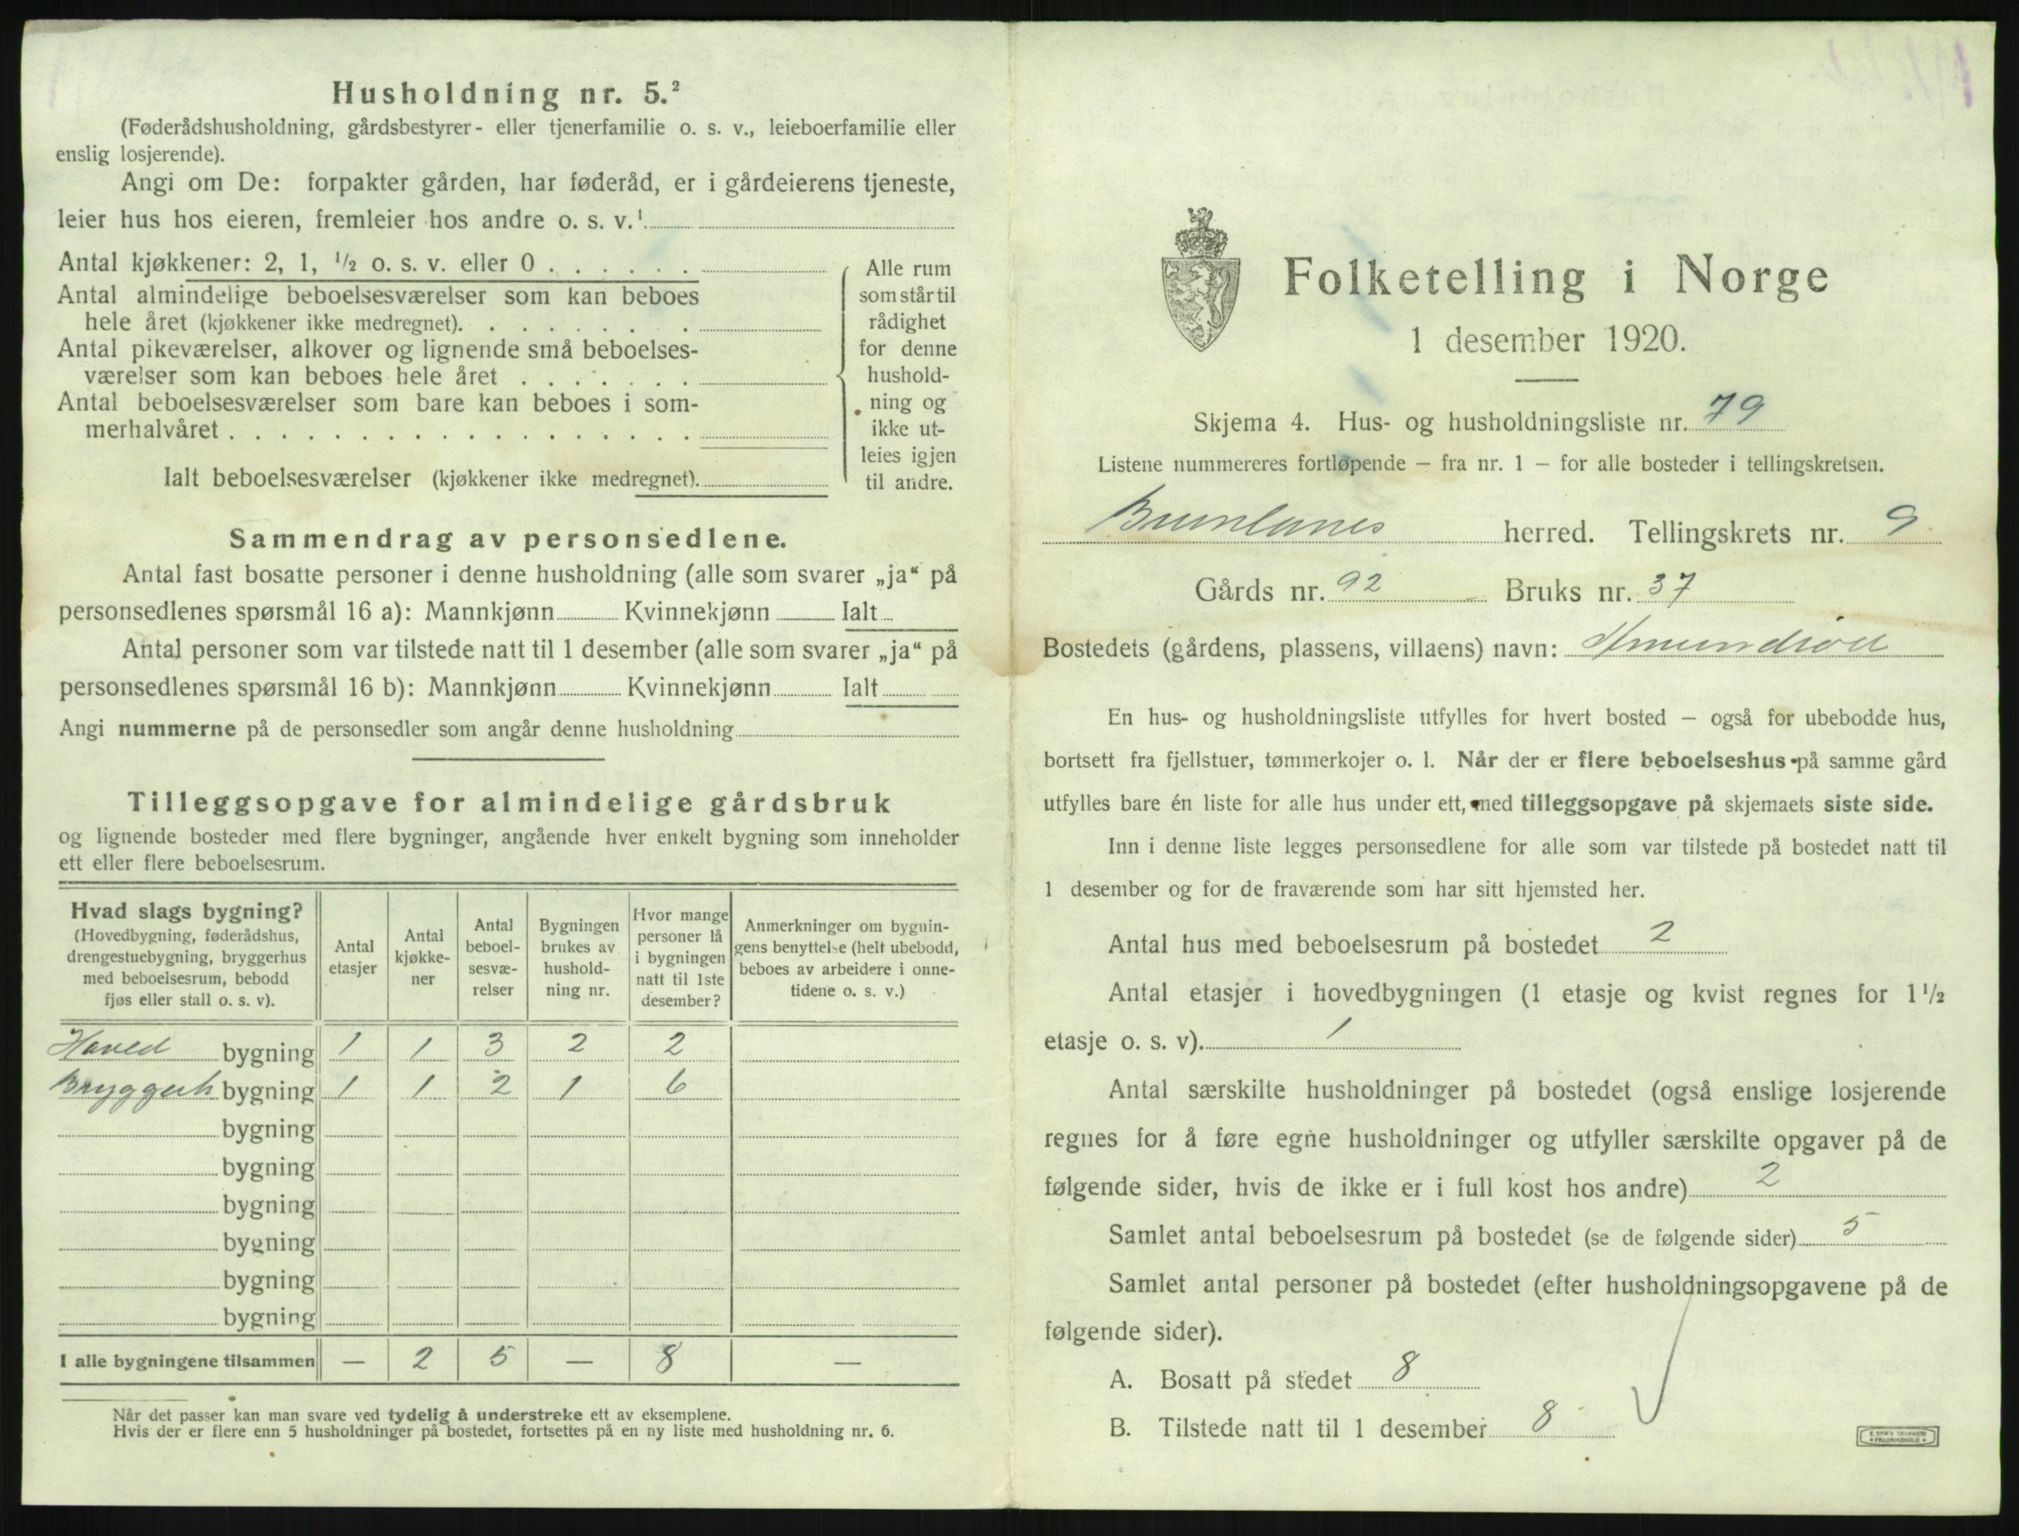 Husholdning nr. 5.²
(Føderådshusholdning, gårdsbestyrer- eller tjenerfamilie o. s. v., leieboerfamilie eller
enslig losjerende).
Angi om De: forpakter gården, har føderåd, er i gårdeierens tjeneste,
leier hus hos eieren, fremleier hos andre o. s. v.¹
Antal kjøkkener: 2, 1, ½ o. s. v. eller 0 . . . . . .
Antal almindelige beboelsesværelser som kan beboes
hele året (kjøkkener ikke medregnet). . . . . . . .
Antal pikeværelser, alkover og lignende små beboelses-
værelser som kan beboes hele året . . . . . . .
Antal beboelsesværelser som bare kan beboes i som-
merhalvåret . . . . . . . . . . . . . . . . . .
Ialt beboelsesværelser (kjøkkener ikke medregnet).
Alle rum
som står til
rådighet
for denne
hushold-
ning og
ikke ut-
leies igjen
til andre.
Sammendrag av personsedlene.
Antal fast bosatte personer i denne husholdning (alle som svarer „ja“ på
personsedlenes spørsmål 16 a): Mannkjønn Kvinnekjønn Ialt
Antal personer som var tilstede natt til 1 desember (alle som svarer „ja“ på
personsedlenes spørsmål 16 b): Mannkjønn Kvinnekjønn Ialt
Angi nummerne på de personsedler som angår denne husholdning
Tilleggsopgave for almindelige gårdsbruk
og lignende bosteder med flere bygninger, angående hver enkelt bygning som inneholder
ett eller flere beboelsesrum.
Hvad slags bygning?
(Hovedbygning, føderådshus,
drengestuebygning, bryggerhus
med beboelsesrum, bebodd
fjøs eller stall o. s. v).
Antal
etasjer
Antal
kjøkke-
ner
Antal
beboel-
sesvæ-
relser
Bygningen
brukes av
hushold-
ning nr.
Hvor mange
personer lå
i bygningen
natt til 1ste
desember?
Anmerkninger om bygnin-
gens benyttelse (helt ubebodd,
beboes av arbeidere i onne-
tidene o. s. v.)
Hoved bygning 1 1 3 2 2
Bryggerh bygning 1 1 2 1 6
bygning
bygning
bygning
bygning
bygning
bygning
I alle bygningene tilsammen — 2 5 — 8 —
Når det passer kan man svare ved tydelig å understreke ett av eksemplene.
Hvis der er flere enn 5 husholdninger på bostedet, fortsettes på en ny liste med husholdning nr. 6.
Folketelling i Norge
1 desember 1920.
Skjema 4. Hus- og husholdningsliste nr. 79
Listene nummereres fortløpende — fra nr. 1 — for alle bosteder i tellingskretsen.
Brunlanes herred. Tellingskrets nr. 9
Gårds nr. 92 Bruks nr. 37
Bostedets (gårdens, plassens, villaens) navn: Amundrød
En hus- og husholdningsliste utfylles for hvert bosted — også for ubebodde hus,
bortsett fra fjellstuer, tømmerkojer o. l. Når der er flere beboelseshus på samme gård
utfylles bare én liste for alle hus under ett, med tilleggsopgave på skjemaets siste side.
Inn i denne liste legges personsedlene for alle som var tilstede på bostedet natt til
1 desember og for de fraværende som har sitt hjemsted her.
Antal hus med beboelsesrum på bostedet 2
Antal etasjer i hovedbygningen (1 etasje og kvist regnes for 1½
etasje o. s. v). 1
Antal særskilte husholdninger på bostedet (også enslige losjerende
regnes for å føre egne husholdninger og utfyller særskilte opgaver på de
følgende sider, hvis de ikke er i full kost hos andre) 2
Samlet antal beboelsesrum på bostedet (se de følgende sider) 5
Samlet antal personer på bostedet (efter husholdningsopgavene på de
følgende sider).
A. Bosatt på stedet 8
B. Tilstede natt til 1 desember 8